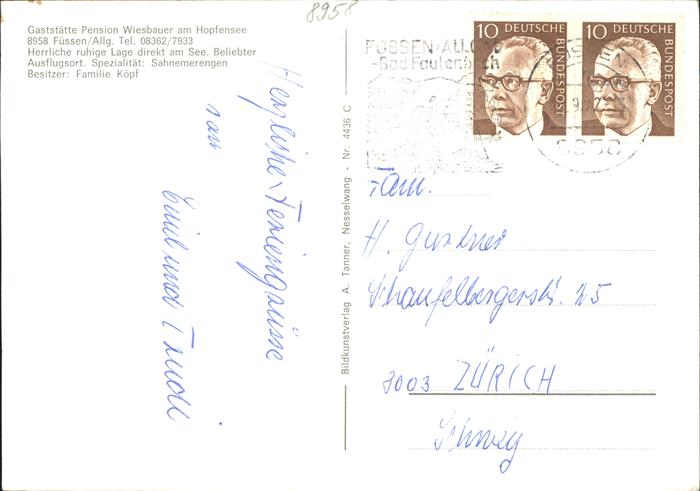 8958
Gaststätte Pension Wiesbauer am Hopfensee
8958 Füssen/Allg. Tel. 08362/7933
Herrliche ruhige Lage direkt am See. Beliebter
Ausflugsort. Spezialität: Sahnemerengen
Besitzer: Familie Köpf
Herzliche Feriengrüsse
von
Emil und Trudi
Bildkunstverlag A. Tanner, Nesselwang - Nr. 4436 C
FÜSSEN-ALLGÄU
-Bad Faulenbach
10
DEUTSCHE BUNDESPOST
10
DEUTSCHE BUNDESPOST
8958
Fam.
H. Gurtner
Schaufelbergerstr. 25
8003 ZÜRICH
Schweiz